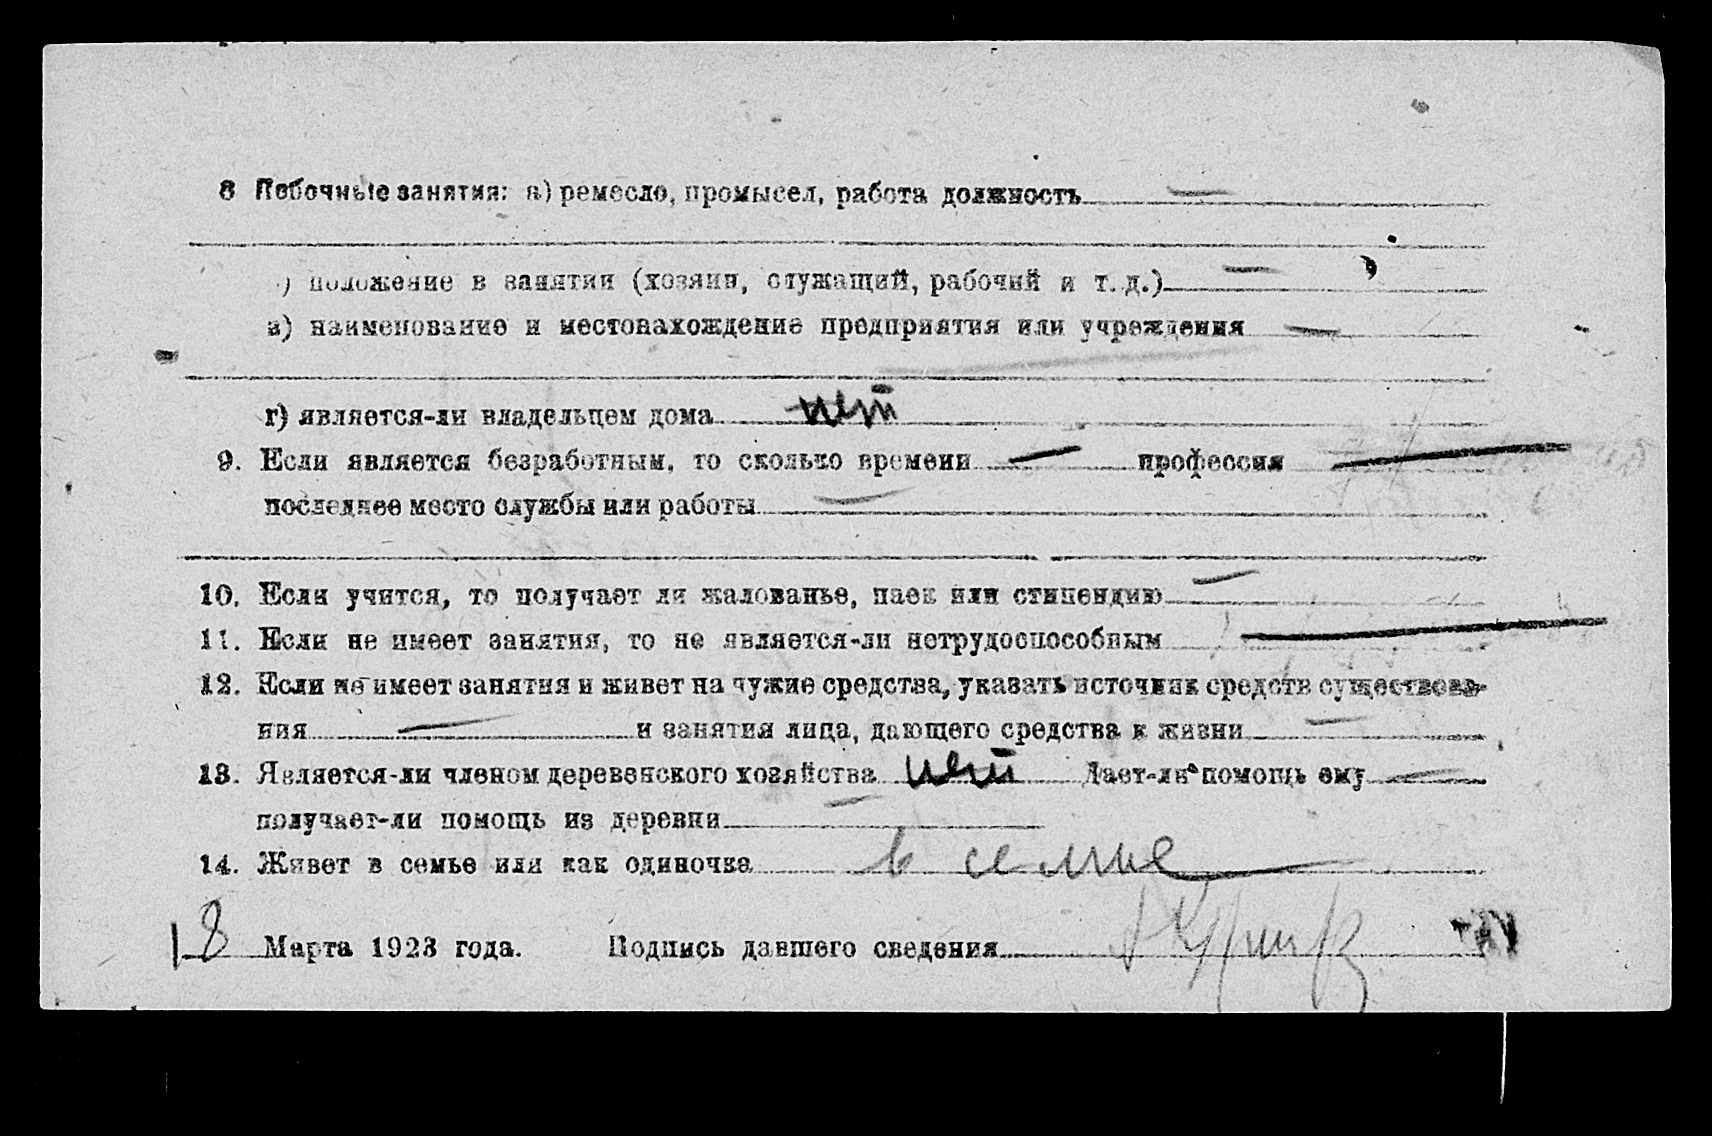 8 Побочные занятия: а) ремесло, промысел, работа должность —
) положение в занятии (хозяин, служащий, рабочий и т. д.) —
в) наименование и местонахождение предприятия или учреждения —
г) является-ли владельцем дома нет
9. Если является безработным, то сколько времени — профессия —
последнее место службы или работы —
10. Если учится, то получает ли жалованье, паек или стипендию —
11. Если не имеет занятия, то не является-ли нетрудоспособным —
12. Если не имеет занятия и живет на чужие средства, указать источник средств существова-
ния — и занятия лица, дающего средства к жизни —
13. Является-ли членом деревенского хозяйства нет Дает-ли помощь ему —
получает-ли помощь из деревни —
14. Живет в семье или как одиночка в семье
18 Марта 1923 года. Подпись давшего сведения